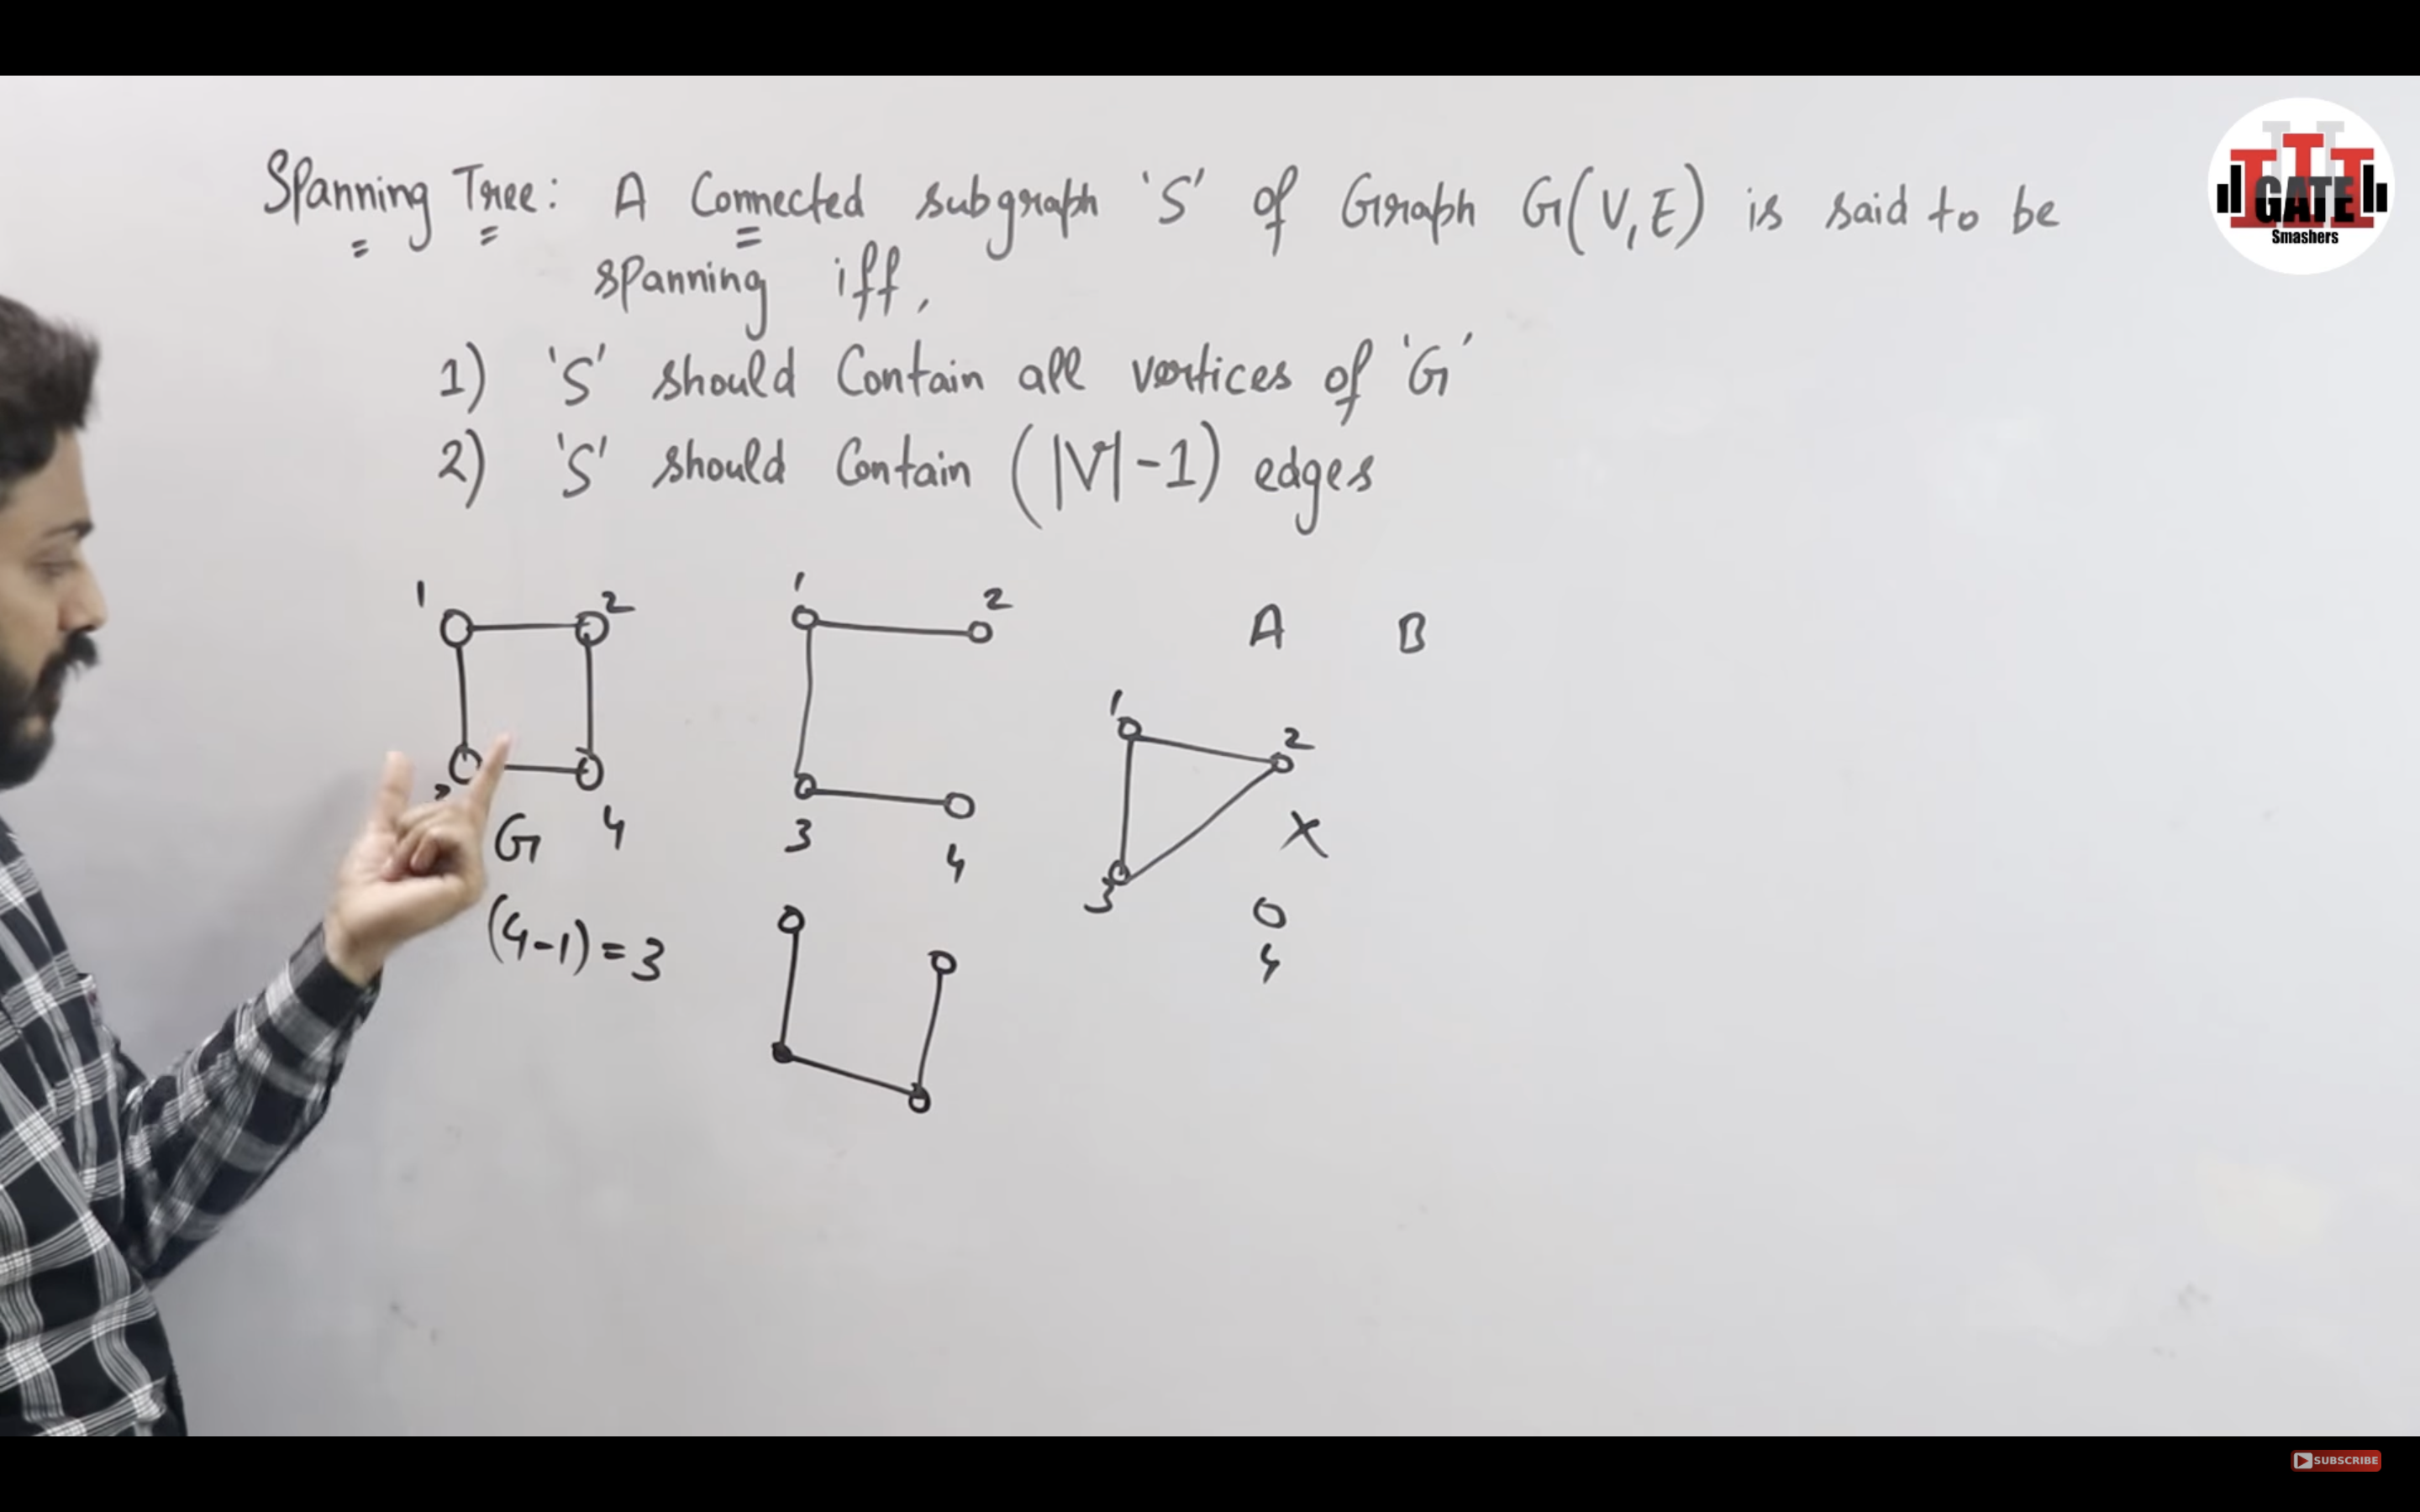 Spanning Tree: A Connected subgraph 'S' of Graph G(V,E) is said to be
spanning iff,
1) 'S' should Contain all vertices of 'G'
2) 'S' should Contain (|V|-1) edges
GATE
Smashers
1 2
4
G
(4-1)=3
1 2
3 4
A B
1 2
3
X
4
SUBSCRIBE